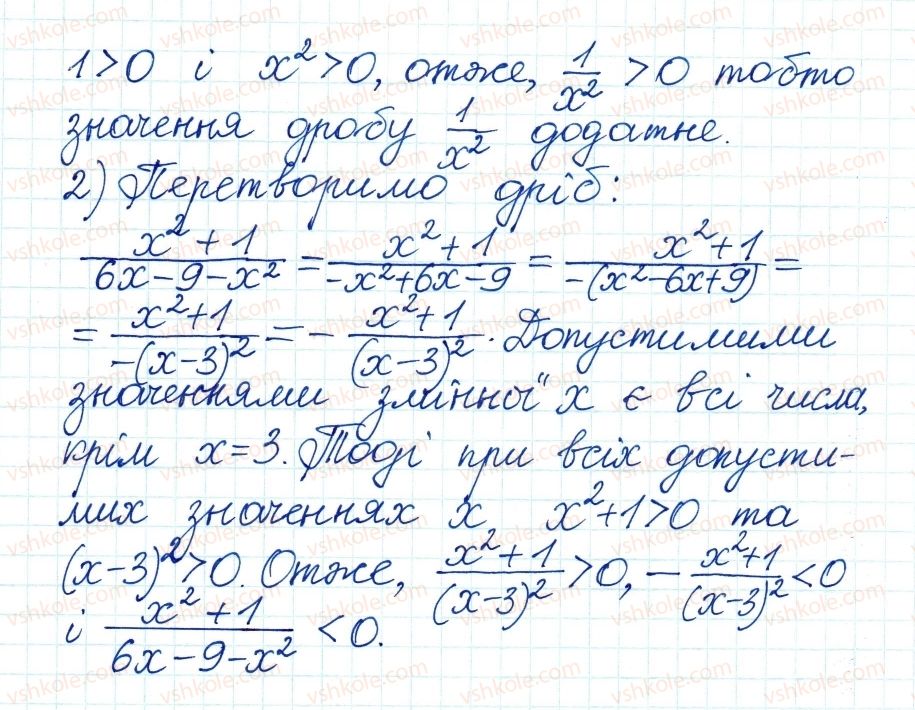 1>0 і x²>0, отже, 1/x² >0 тобто
значення дробу 1/x² додатне.
2) Перетворимо дріб:
(x²+1)/(6x−9−x²) = (x²+1)/(−x²+6x−9) = (x²+1)/(−(x²−6x+9)) =
= (x²+1)/(−(x−3)²) = − (x²+1)/(x−3)². Допустимими
значеннями змінної x є всі числа,
крім x=3. Тоді при всіх допусти-
мих значеннях x, x²+1>0 та
(x−3)²>0. Отже, (x²+1)/(x−3)² >0, −(x²+1)/(x−3)² <0
і (x²+1)/(6x−9−x²) <0.